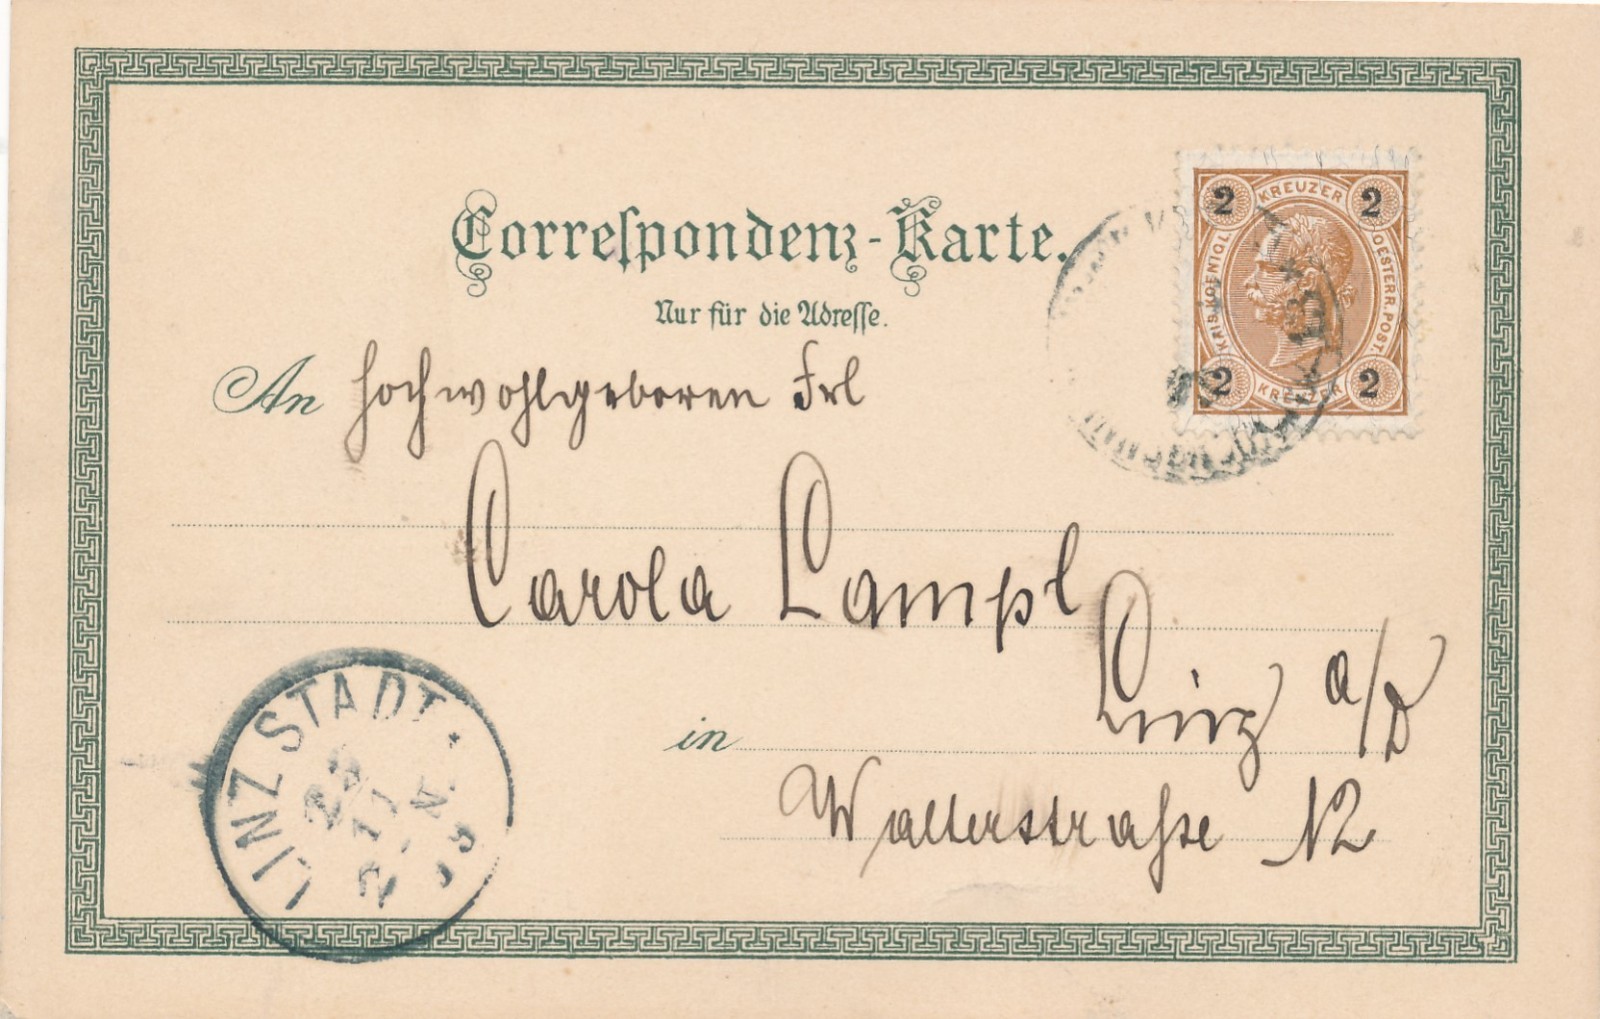 Correspondenz-Karte.
Nur für die Adresse.
An Hochwohlgeboren Frl
Carola Lampl
in Linz a/D
Walterstraße 12
2 KREUZER 2
KAIS. KOENIGL. OESTERR. POST.
2 KREUZER 2
LINZ STADT